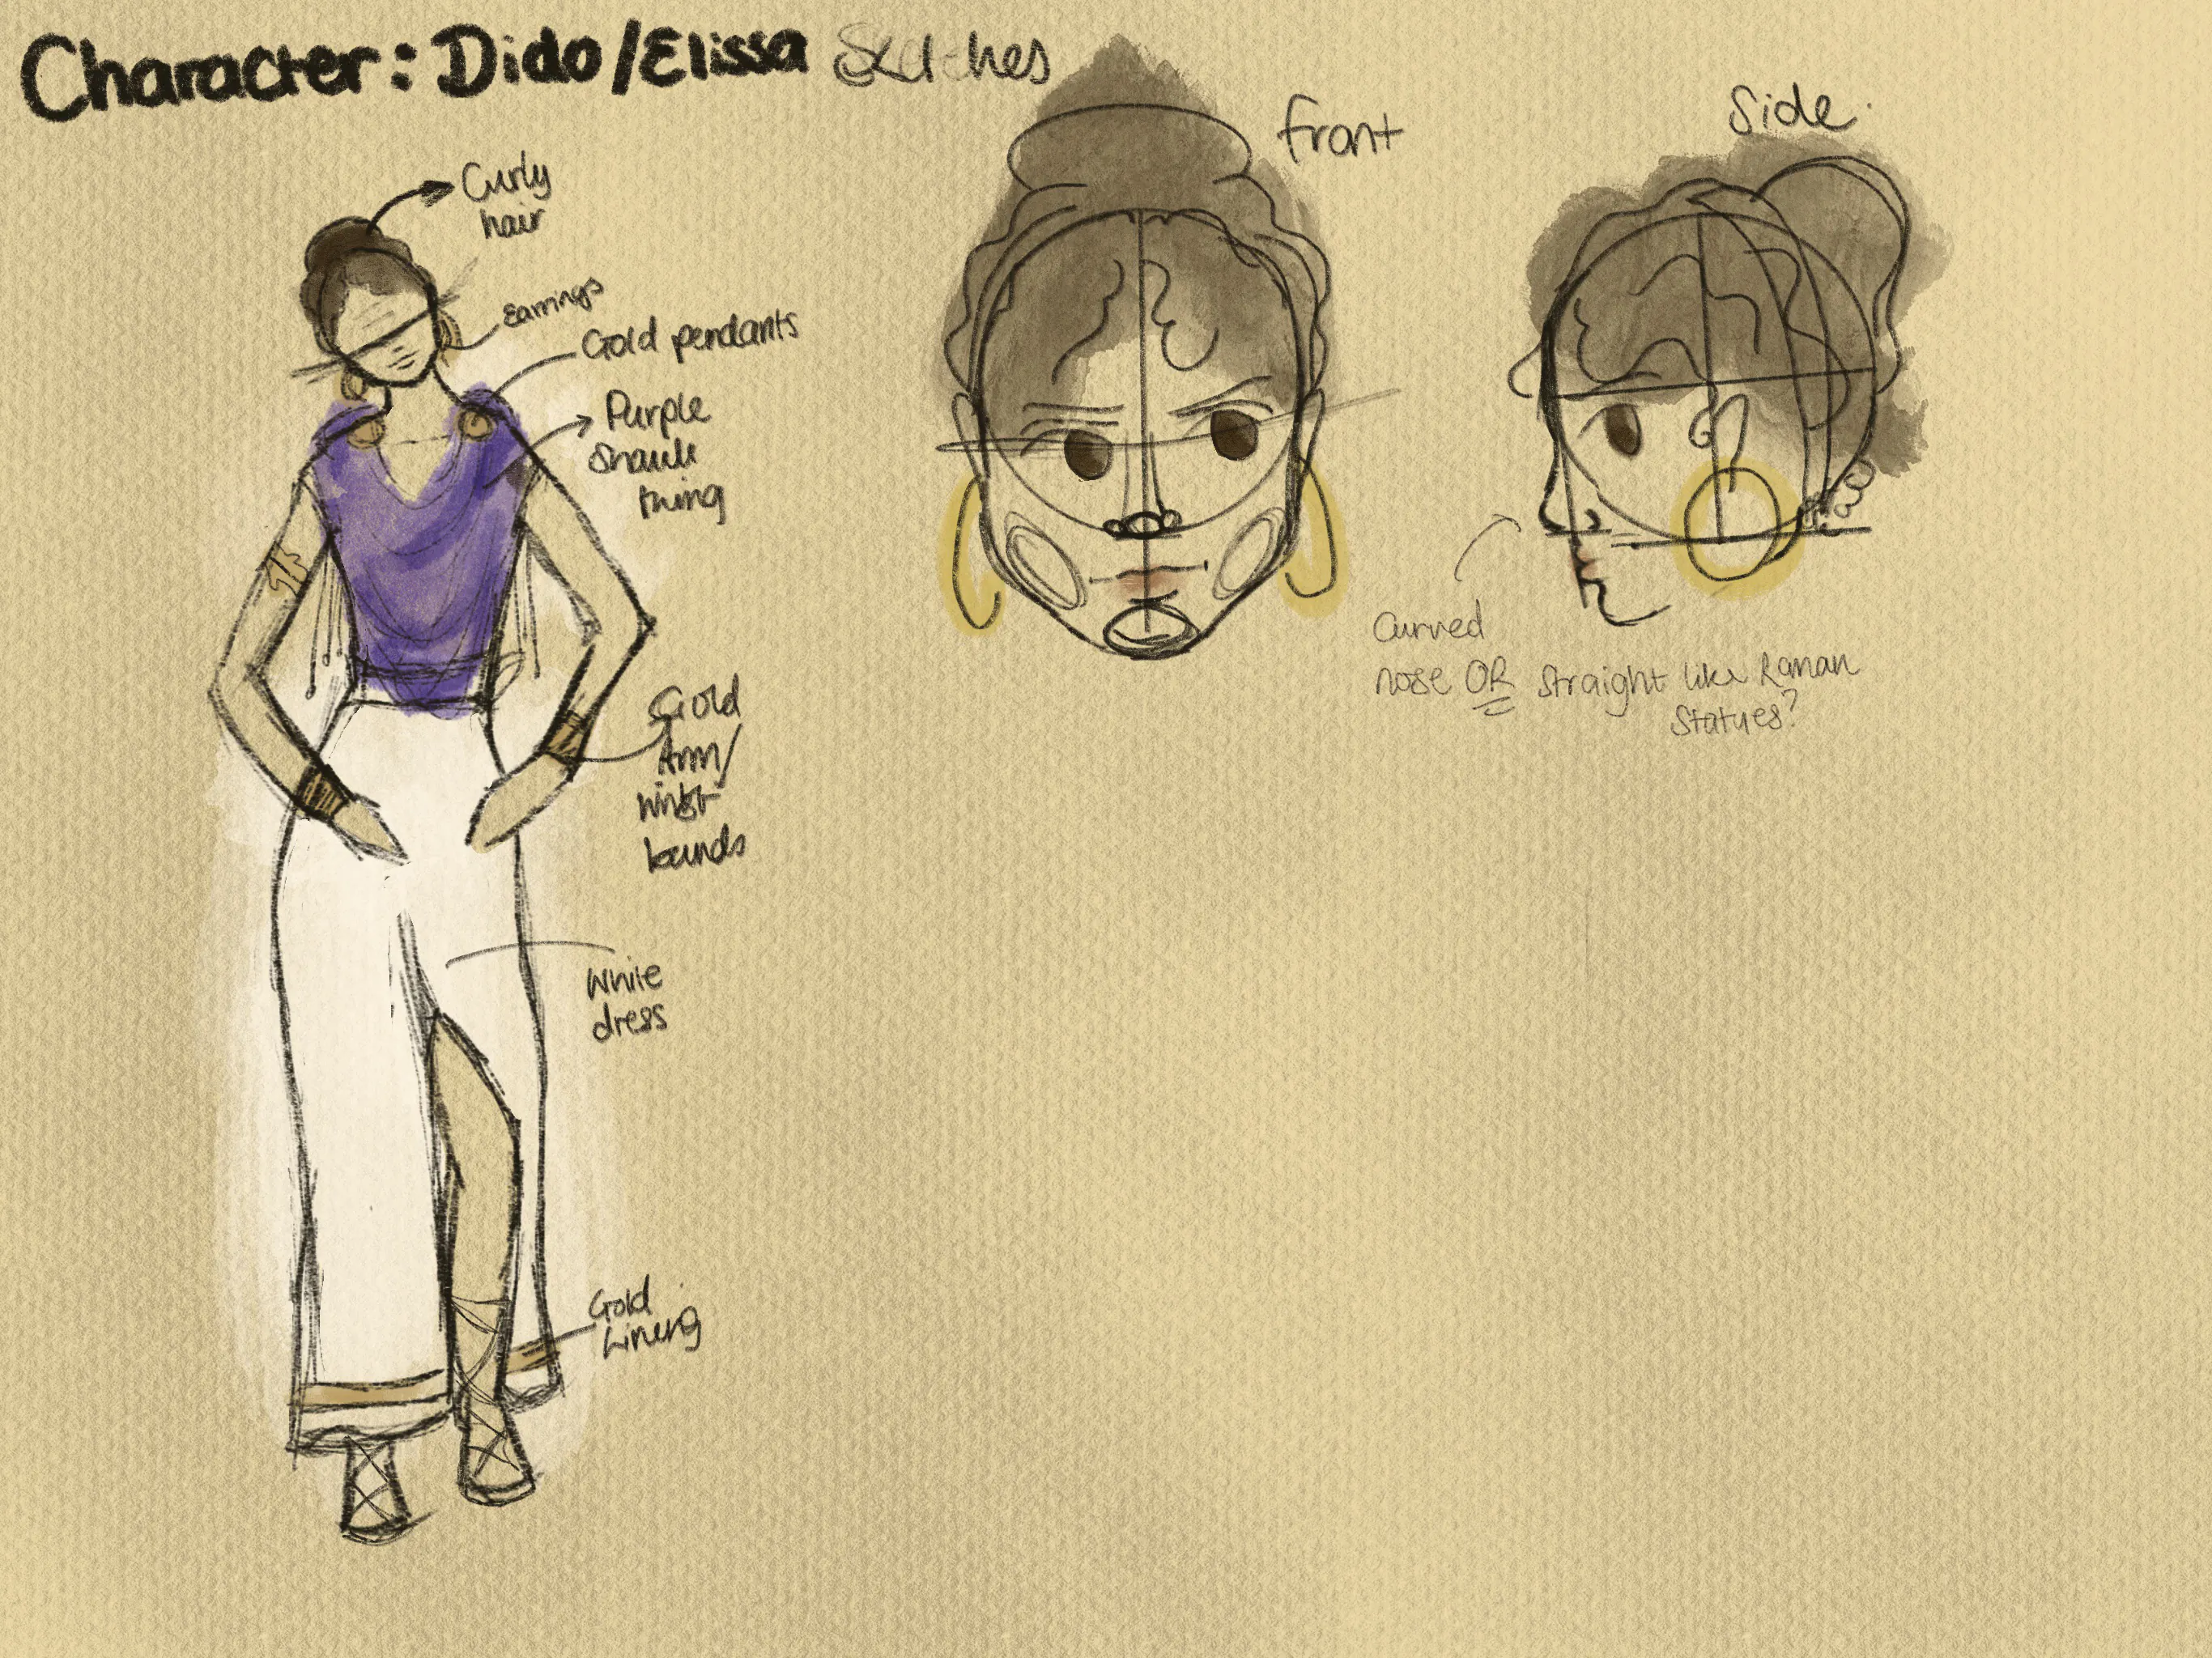 Character: Dido/Elissa Sketches
Curly
hair
Earrings
Gold pendants
Purple
Shawl
thing
Gold
Arm/
wrist
bands
White
dress
Gold
Lining
front
Side.
Curved
nose OR straight like Roman
Statues?